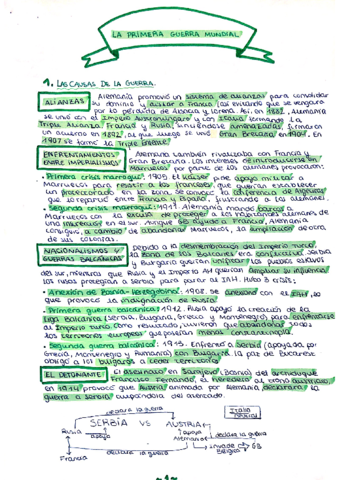 LA PRIMERA GUERRA MUNDIAL
1. LAS CAUSAS DE LA GUERRA.
ALIANZAS Alemania promovió un sistema de alianzas para consolidar
su dominio y aislar a Francia, así evitando que se vengara
por la pérdida de Alsacia y Lorena. Así, en 1882, Alemania
se unió con el Imperio Austrohúngaro y con Italia, formando la
Triple Alianza. Francia y Rusia, sintiéndose amenazadas, firmaron
un acuerdo en 1892, al que luego se unió Gran Bretaña en 1904. En
1907 se formó la Triple Entente.
ENFRENTAMIENTOS ENTRE IMPERIALISMOS Alemania también rivalizaba con Francia y
Gran Bretaña. Los intereses de introducirse en
Marruecos por parte de los alemanes provocaron:
- Primera crisis marroquí: 1905. El káiser apoyó militar a
Marruecos para resistir a los franceses, que querían establecer
un protectorado en la zona. Se convocó la Conferencia de Algeciras
que lo repartió entre Francia y España, frustrando a los alemanes.
- Segunda crisis marroquí: 1911. Alemania mandó barcos a
Marruecos con la excusa de proteger a los habitantes alemanes de
una insurrección en el sur. Aunque GB apoyó a Francia, Alemania
consiguió, a cambio de abandonar Marruecos, la ampliación de otra
de sus colonias.
NACIONALISMOS Y GUERRAS BALCÁNICAS Debido a la desmembración del Imperio turco,
la zona de los Balcanes era conflictiva. Serbia
y Bulgaria querían unificar los pueblos eslavos
del sur, mientras que Rusia y el Imperio AH querían ampliar su influencia.
Los rusos protegían a Serbia para parar al IAH. Hubo 3 crisis:
- Anexión de Bosnia-Herzegovina: 1908. Se anexionó con el IAH, lo
que provocó la indignación de Rusia.
- Primera guerra balcánica: 1912. Rusia apoyó la creación de la
Liga Balcánica (Serbia, Bulgaria, Grecia y Montenegro) para enfrentarse
al Imperio turco. Como resultado, tuvieron que abandonar todos
los territorios europeos que poseían menos Constantinopla.
- Segunda guerra balcánica: 1913. Enfrentó a Serbia (apoyada por
Grecia, Montenegro y Rumanía) con Bulgaria. La paz de Bucarest
obligó a los búlgaros a ceder territorio.
EL DETONANTE: El asesinato en Sarajevo (Bosnia) del archiduque
Francisco Fernando, el heredero al trono austriaco,
en 1914 provocó que Austria, animada por Alemania, declarara la
guerra a Serbia, culpándola del atentado.
declara la guerra
Rusia
apoya
SERBIA VS AUSTRIA
apoya
Alemania
Italia neutral
declara la guerra
invade Bélgica
GB
declara la guerra
Francia
-1-